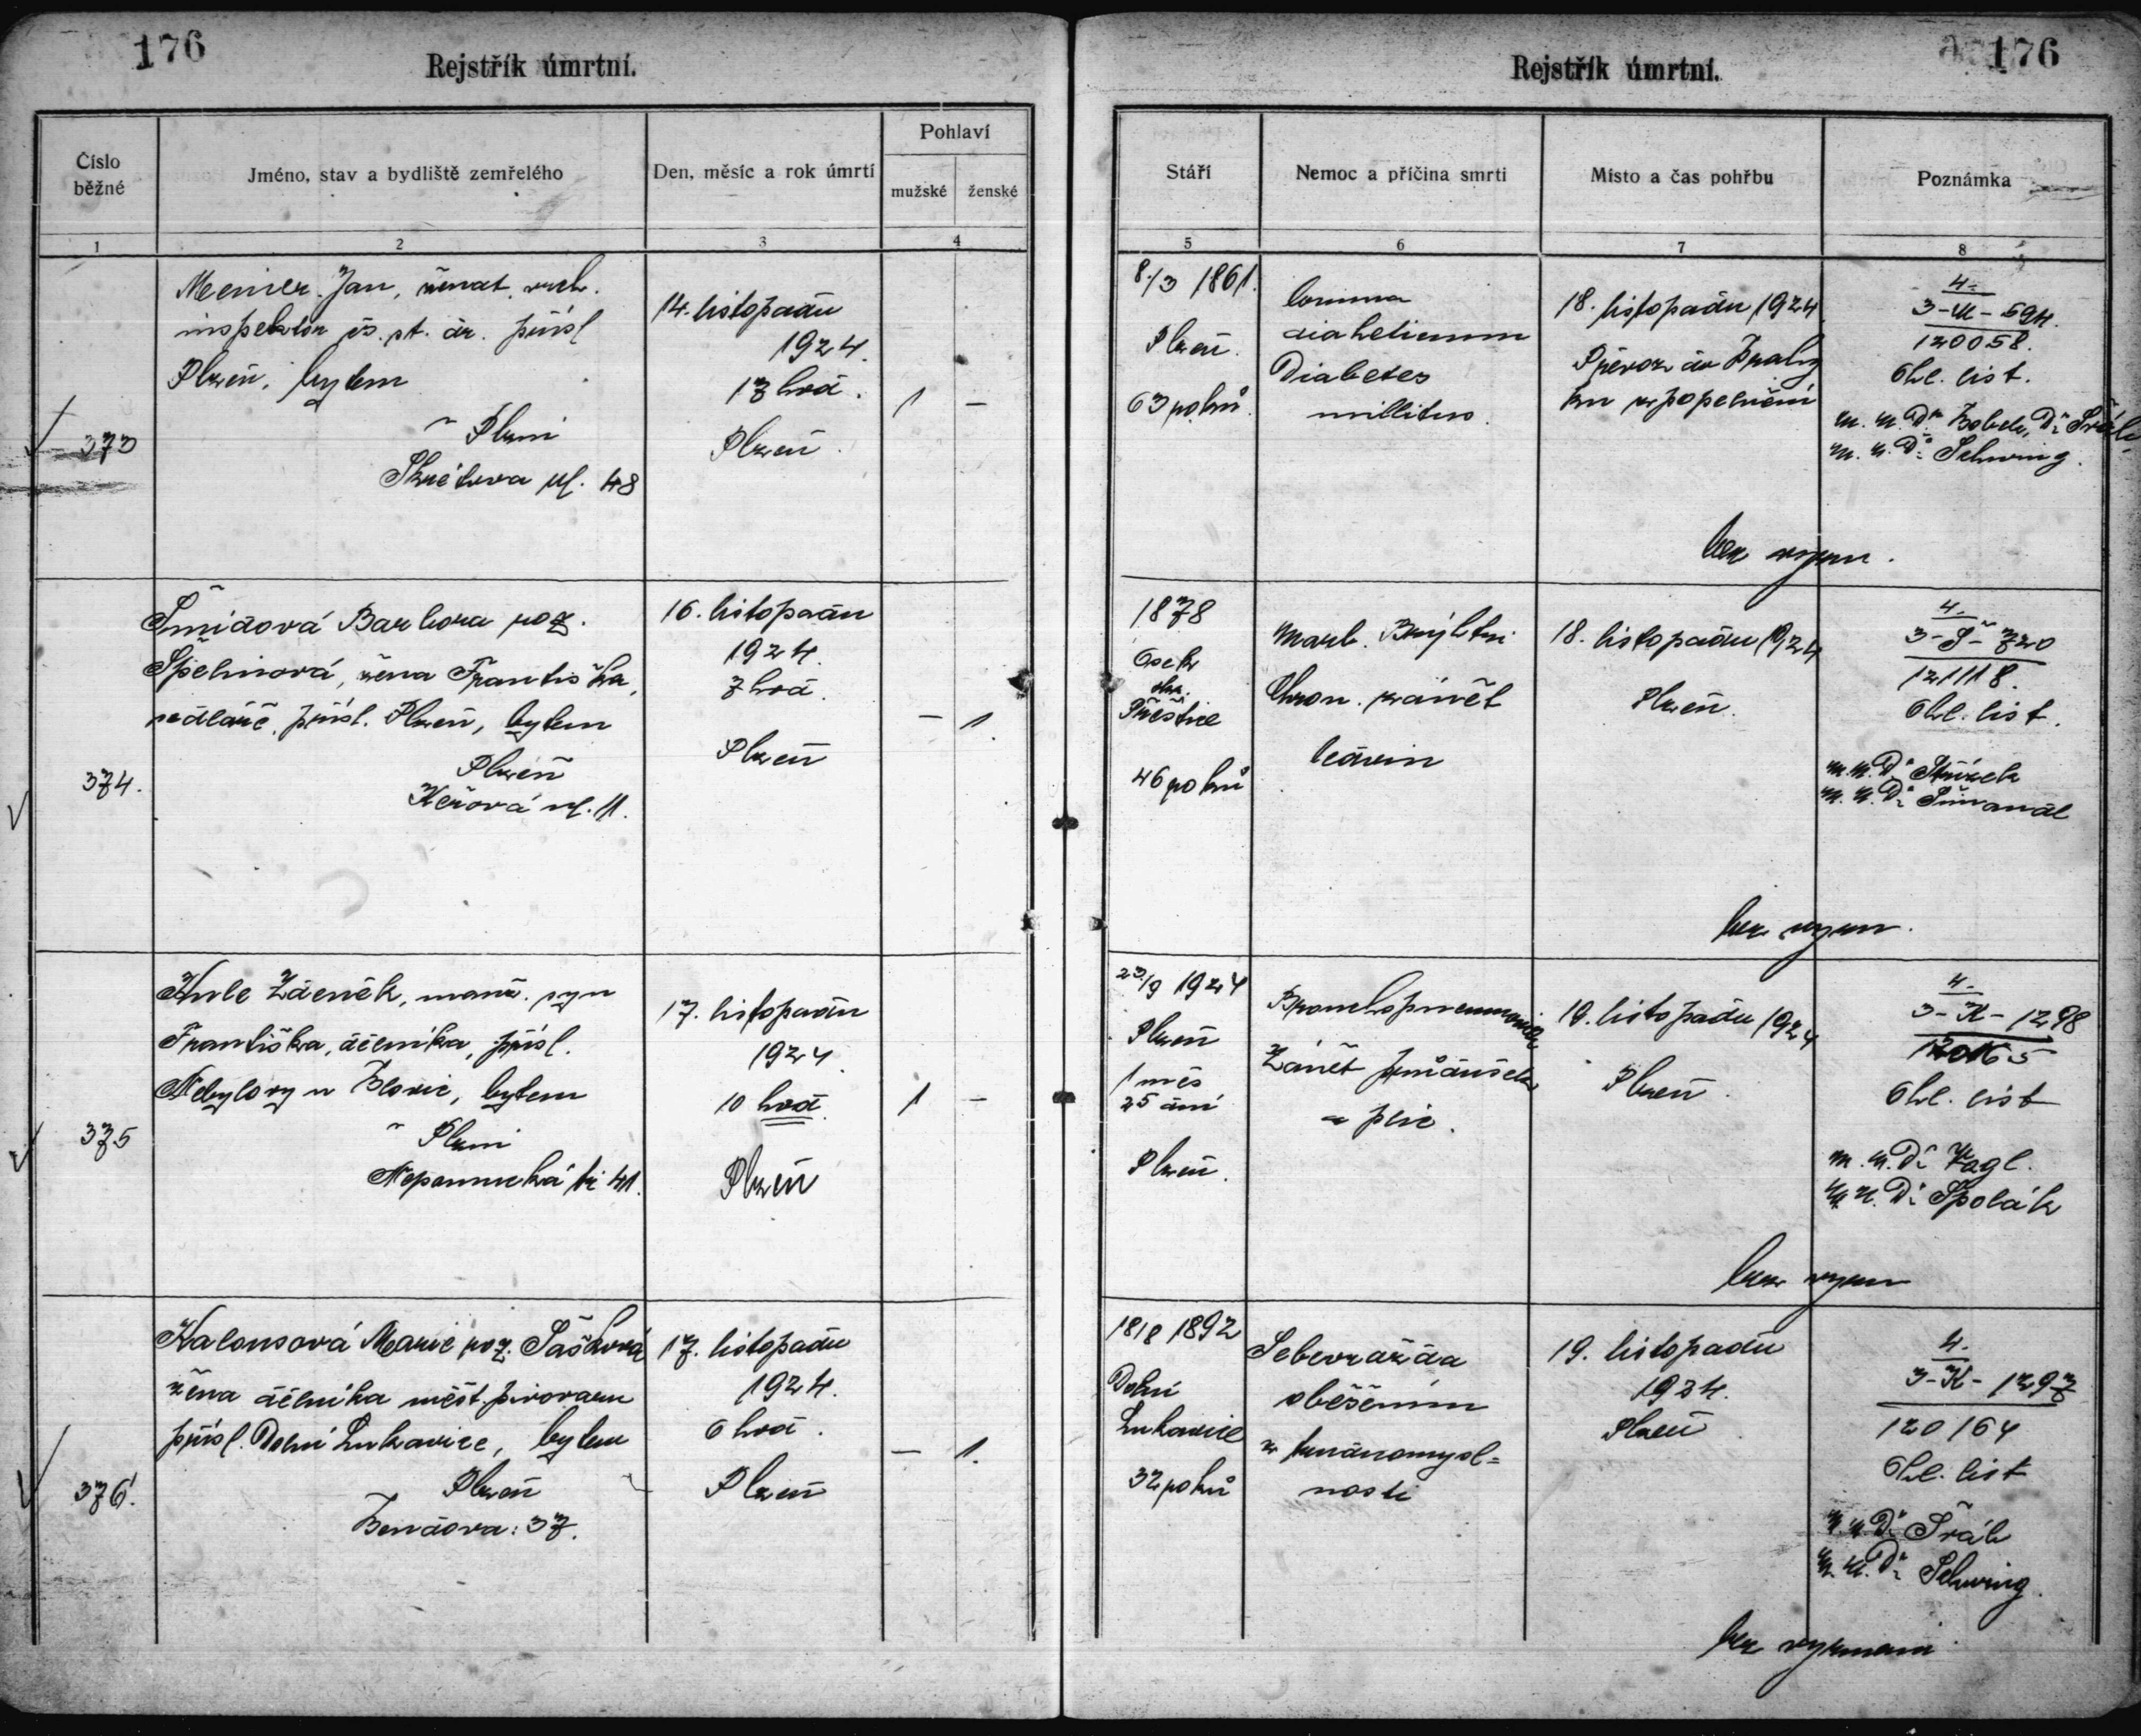 176
Rejstřík úmrtní.
Číslo běžné
Jméno, stav a bydliště zemřelého
Den, měsíc a rok úmrtí
Pohlaví
mužské
ženské
1
2
3
4
373
Jan, ženat
inspektor čs. st. dr. přísl
Plzeň, bytem
v Plzni
Škrétova ul. 48
14. listopadu
1924.
17 hod.
Plzeň.
1
–
374.
Šmídová Barbora roz.
Špelinová, žena Františka,
sedláře, přísl. Plzeň, bytem
Plzeň
Keřová ul. 11.
16. listopadu
1924.
7 hod.
Plzeň
–
1
375
Kule Zdeněk, manž. syn
Františka, dělníka, přísl.
Nebylovy u Blovic, bytem
v Plzni
Nepomucká tř. 41.
17. listopadu
1924
10 hod.
Plzeň
1
–
376.
Kalousová Marie roz. Sašková
žena dělníka měšt. pivovaru
přísl. Dolní Lukavice, bytem
Plzeň
Bendova: 37.
17. listopadu
1924.
6 hod.
Plzeň
–
1.
176
Rejstřík úmrtní.
Stáří
Nemoc a příčina smrti
Místo a čas pohřbu
Poznámka
5
6
7
8
8./3 1861.
Plzeň.
63 roků.
Comma
diabeticum
Diabetes
millitus.
18. listopadu 1924
Převoz do Prahy
ku zpopelnění
4.
3-M-594.
120058.
Ohl. list.
m. u. Dr Bobek, Dr
m. u. Dr Schwing.
bez vyzn.
1878
Osek
okr.
Přeštice
46 roků
Morb. Brightii
Chron. zánět
ledvin
18. listopadu 1924
Plzeň.
4.
3-Š-720
121118.
Ohl. list.
m. u. Dr Střízek
m. u. Dr Šimanál
bez vyzn.
23/9 1924
Plzeň
1 měs
25 dní
Plzeň.
Bronchopneumonie
Zánět průdušek
a plic.
19. listopadu 1924
Plzeň.
4.
3-K-1298
120165
Ohl. list
m. u. Dr Vogl.
m. u. Dr Spolák
bez vyzn
18/8 1892
Dolní
Lukavice
32 roků
Sebevražda
oběšením
z trudnomysl=
nosti
19. listopadu
1924.
Plzeň
4.
3-K-1297
120164
Ohl. list
m. u. Dr Šráb
m. u. Dr Schwing.
bez vyznání